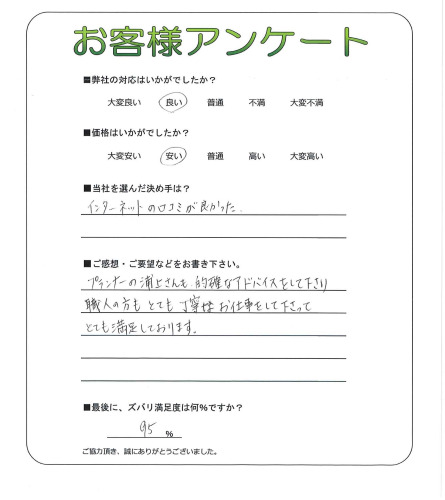 お客様アンケート
■弊社の対応はいかがでしたか？
大変良い 良い 普通 不満 大変不満
■価格はいかがでしたか？
大変安い 安い 普通 高い 大変高い
■当社を選んだ決め手は？
インターネットの口コミが良かった.
■ご感想・ご要望などをお書き下さい。
プランナーの浦上さんも、的確なアドバイスをして下さり
職人の方も とても 丁寧な お仕事をして下さって
とても満足しております。
■最後に、ズバリ満足度は何%ですか？
95 %
ご協力頂き、誠にありがとうございました。